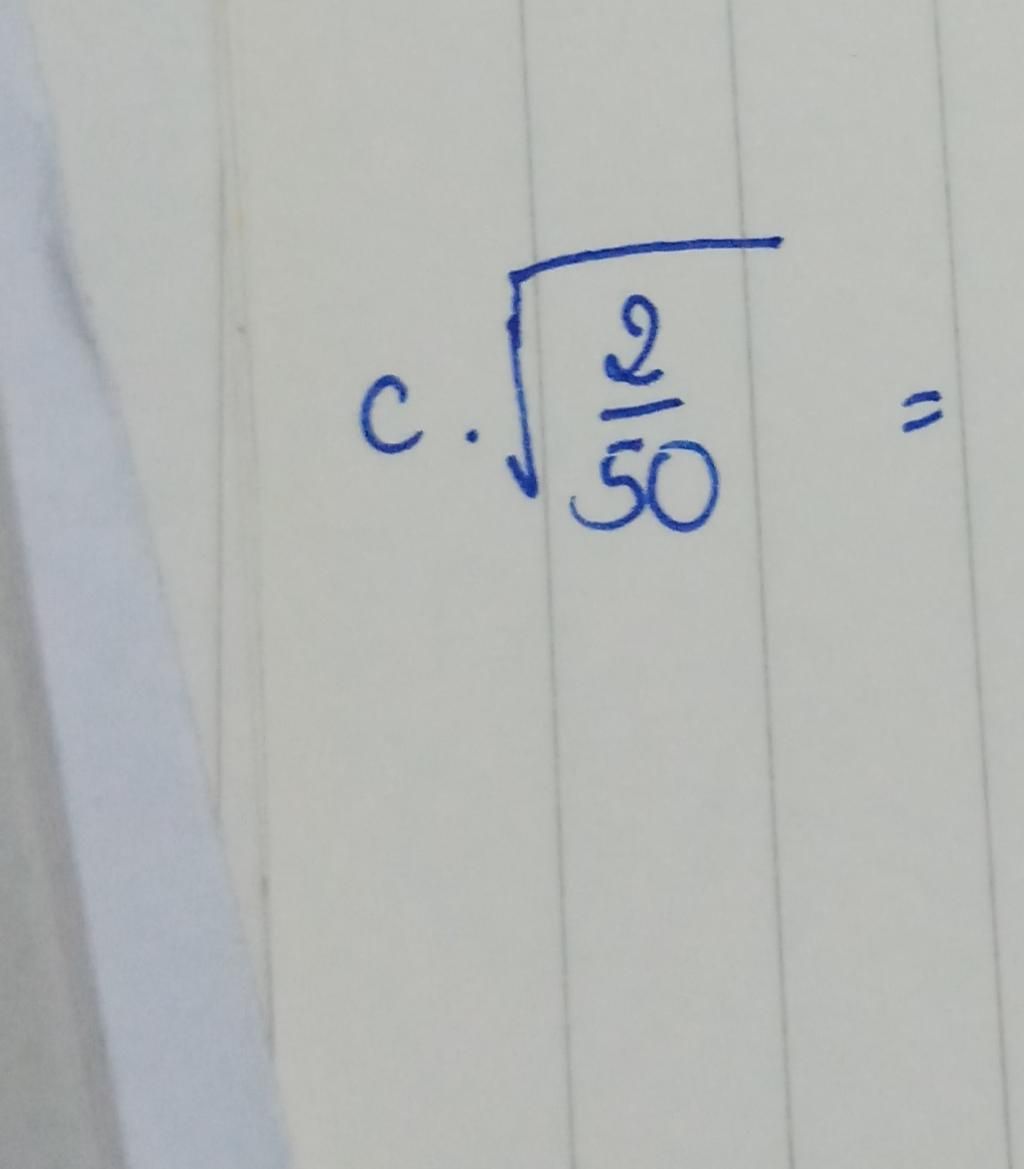 c. √(2/50) =